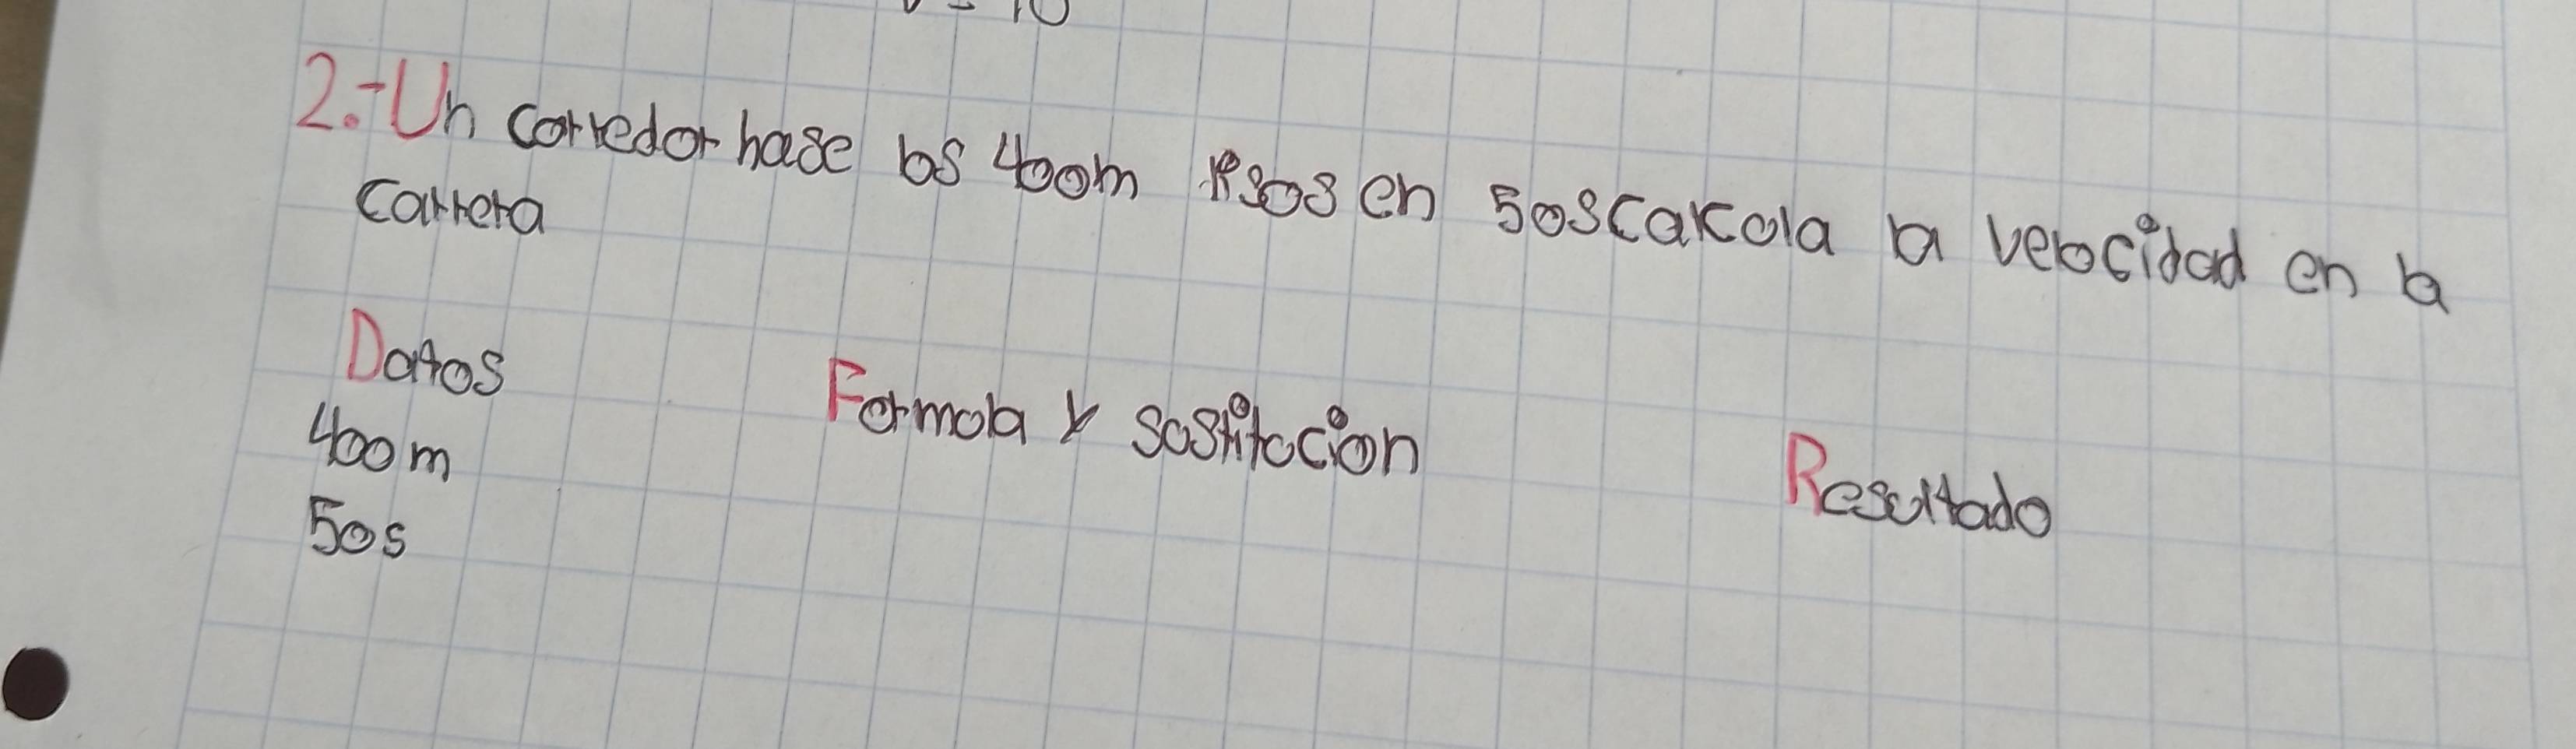 2.- Un corredor hase los 400m lisos en 50s cakola la velocidad en la
carrera
Datos
Formola y sostitocion
Resultado
400m
50s